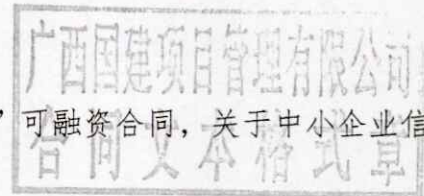 广西国建项目管理有限公司
”可融资合同，关于中小企业信
合同文本格式章